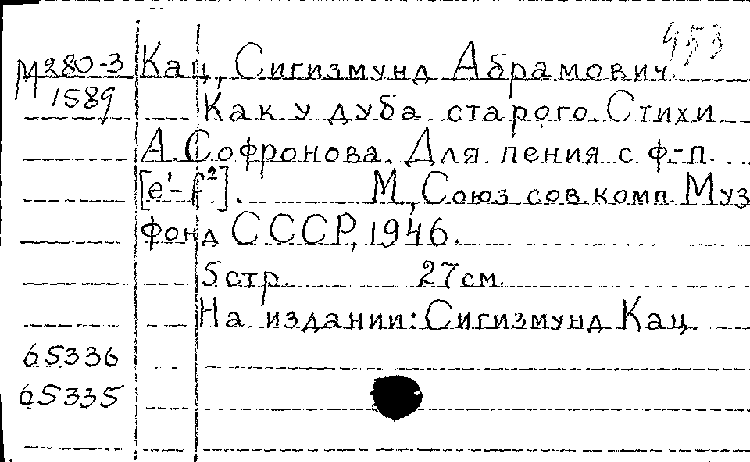 953
М280-3 Кац, Сигизмунд Абрамович.
1589 Как у дуба старого. Стихи
А. Софронова. Для пения с ф-п.
[e¹-f²]. М., Союз сов. комп. Муз
фонд СССР, 1946.
5 стр. 27 см.
На издании: Сигизмунд Кац.
65336
65335